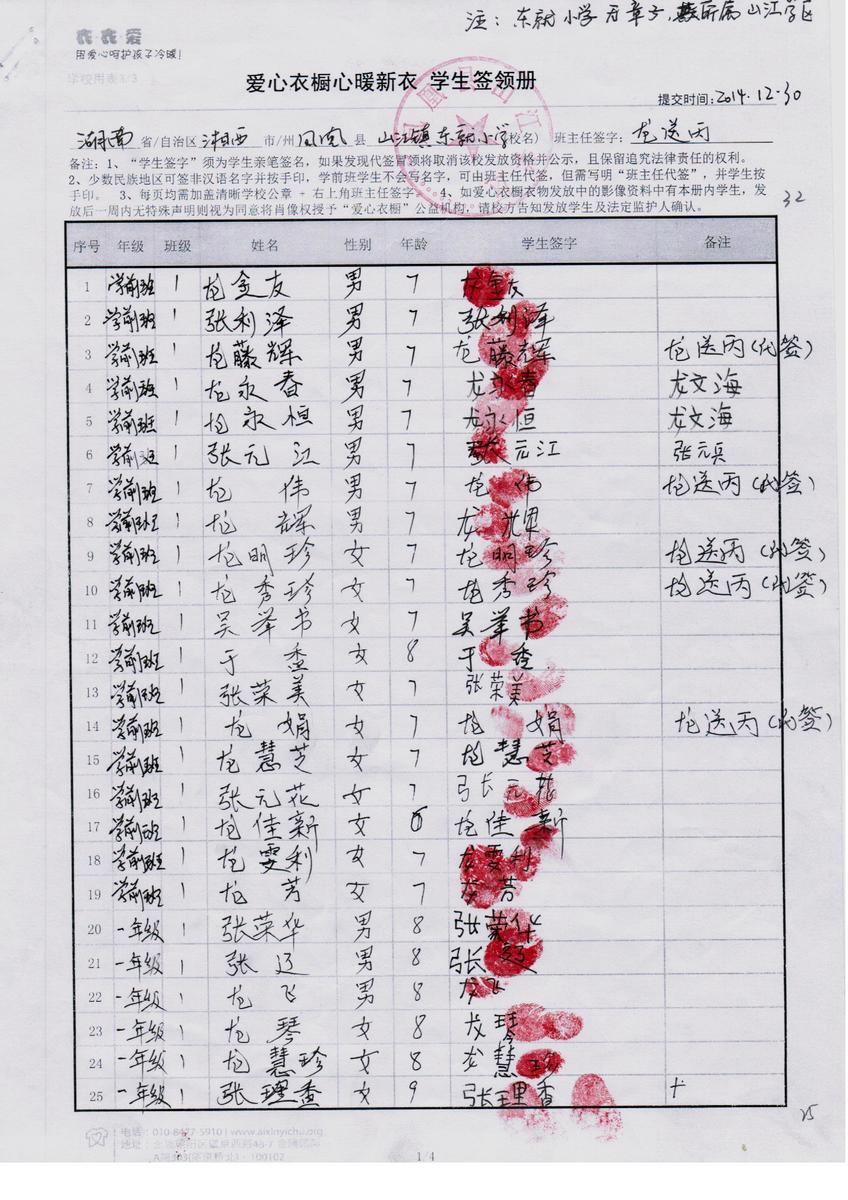 注：东就小学无章子，属山江学区
衣衣爱
用爱心呵护孩子冷暖!
学校用表3/3
爱心衣橱心暖新衣 学生签领册
提交时间:2014.12.30
湖南 省/自治区 湘西 市/州 凤凰 县 山江镇东就小学(校名) 班主任签字: 龙送丙
备注：1、“学生签字”须为学生亲笔签名，如果发现代签冒领将取消该校发放资格并公示，且保留追究法律责任的权利。
2、少数民族地区可签非汉语名字并按手印，学前班学生不会写名字，可由班主任代签，但需写明“班主任代签”，并学生按
手印。 3、每页均需加盖清晰学校公章 + 右上角班主任签字。 4、如爱心衣橱衣物发放中的影像资料中有本册内学生，发
放后一周内无特殊声明则视为同意将肖像权授予“爱心衣橱”公益机构，请校方告知发放学生及法定监护人确认。
32
序号 年级 班级 姓名 性别 年龄 学生签字 备注
1 学前班 1 龙金友 男 7 龙金友
2 学前班 1 张利泽 男 7 张利泽
3 学前班 1 龙藤辉 男 7 龙藤辉 龙送丙(代签)
4 学前班 1 龙永春 男 7 龙永春 龙文海
5 学前班 1 龙永恒 男 7 龙永恒 龙文海
6 学前班 1 张元江 男 7 张元江 张元兵
7 学前班 1 龙伟 男 7 龙伟 龙送丙(代签)
8 学前班 1 龙辉 男 7 龙辉
9 学前班 1 龙明珍 女 7 龙明珍 龙送丙(代签)
10 学前班 1 龙秀珍 女 7 龙秀珍 龙送丙(代签)
11 学前班 1 吴举书 女 7 吴举书
12 学前班 1 于香 女 8 于香
13 学前班 1 张荣美 女 7 张荣美
14 学前班 1 龙娟 女 7 龙娟 龙送丙(代签)
15 学前班 1 龙慧芝 女 7 龙慧芝
16 学前班 1 张元花 女 7 张元花
17 学前班 1 龙佳新 女 6 龙佳新
18 学前班 1 龙雯利 女 7 龙雯利
19 学前班 1 龙芳 女 7 龙芳
20 一年级 1 张荣华 男 8 张荣华
21 一年级 1 张辽 男 8 张辽
22 一年级 1 龙飞 男 8 龙飞
23 一年级 1 龙琴 女 8 龙琴
24 一年级 1 龙慧珍 女 8 龙慧珍
25 一年级 1 张理香 女 9 张理香
25
电话：010-8477-5910 | www.aixinyichu.org
1/4